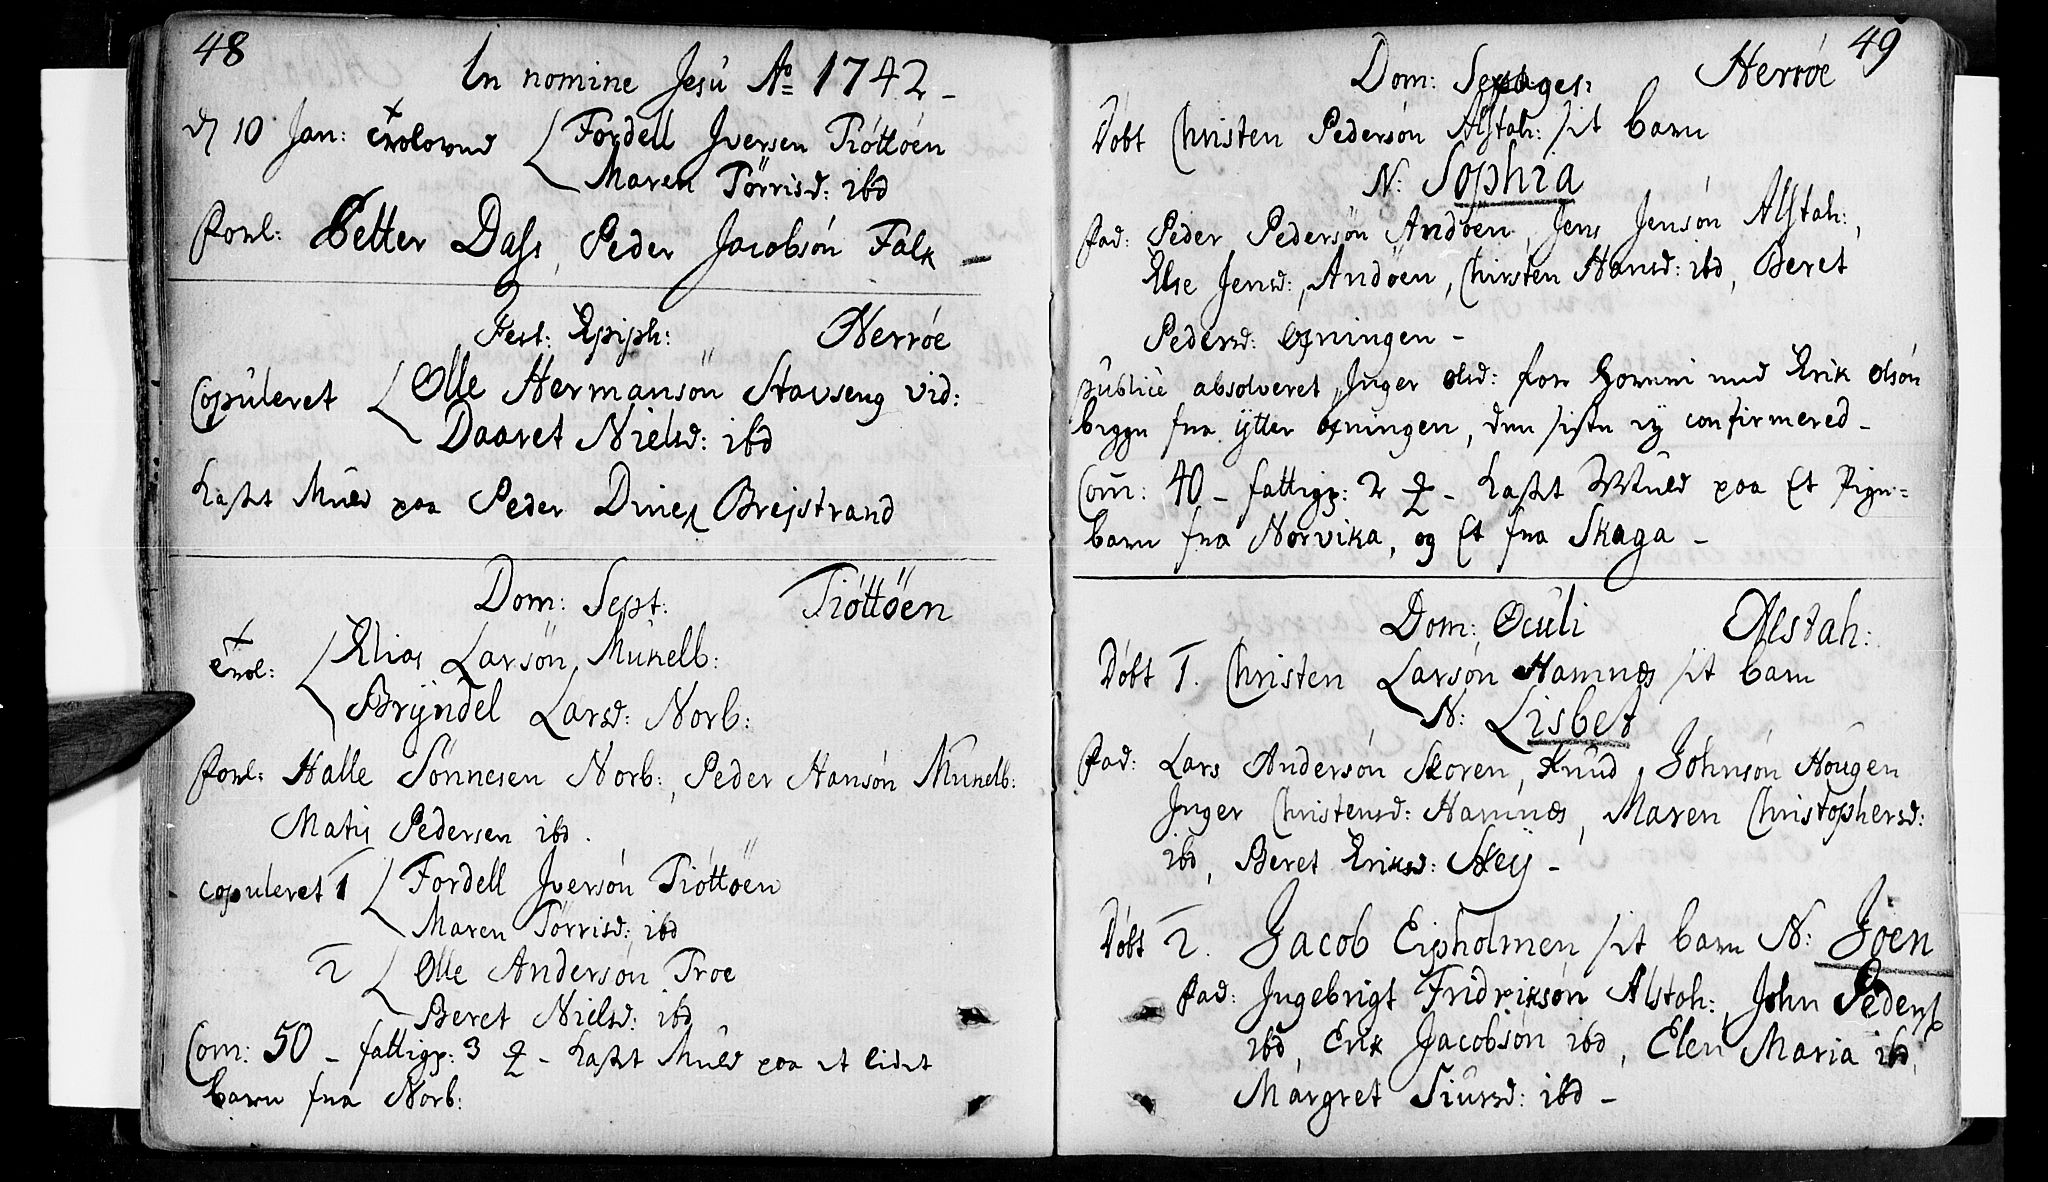 48
In nomine Jesu Ao 1742 -
d 10 Jan: trolovud Fordell Jversen Tiöttöen
Maren Törrisd: ibd
forl: Petter Dass, Peder Jacobsón Falk -
Fest: Epiph: Herröe
Copuleret Olle Hermansón Stavseng vid:
Daaret Nielsd: ibd
kastet Muld paa Peder Brejstrand
Dom: Sept: Tiöttöen
trol: Elias Larsön Munelb:
Bryndel Larsd: Norb:
forl: Halle Sönnesen Norb:, Peder Hansón Munelb:
Matis Pedersen ibd.
copuleret 1 Fordell Jversón Tiöttöen
Maren Törrisd: ibd
2 Olle Andersón Troe
Beret Nielsd: ibd
Com: 50 - fattigp: 3 - kastet Muld paa et lidet
barn fra Norb:
49
Dom: Sexages: Herröe
Döbt Christen Pedersón Alstah: sit barn
N: Sophia
fad: Peder Pedersön Andöen, Jens Jensón Alstah:,
Else Jensd:, Andöen, Chirsten Hansd: ibd, Beret
Pedersd: Öxningen -
publicè absolveret Inger olsd: for Horeri med Erik olsón
begge fra ytter öxningen, den siste ey confirmered -
Com: 40 - fattigp: 2 - kastet Muld paa Et Pige=
barn fra Norvika, og Et fra Skaga -
Dom: Oculi Alstah:
Döbt 1. Christen Larsón Hamnes sit barn
N: Lisbet
fad: Lars Andersón Skoren, Knud Johnsón Hougen
Inger Christensd: Hamnes, Maren Christophersd:
ibd, Beret Eriksd: Skey -
Döbt 2. Jacob Eipholmen sit barn N: Joen
fad: Ingebrigt Fridriksón Alstah:, John Peders
ibd, Erik Jacobsón ibd, Elen Maria ibd,
Margret Siursd: ibd -